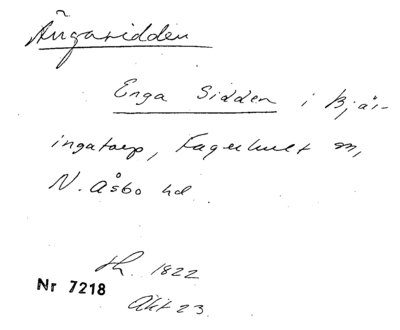 Ängasidden
Enga Sidden i Bjär-
ingatorp, Fagerhult sn,
N. Åsbo hd
Lh. 1822
Nr 7218
Akt 23.